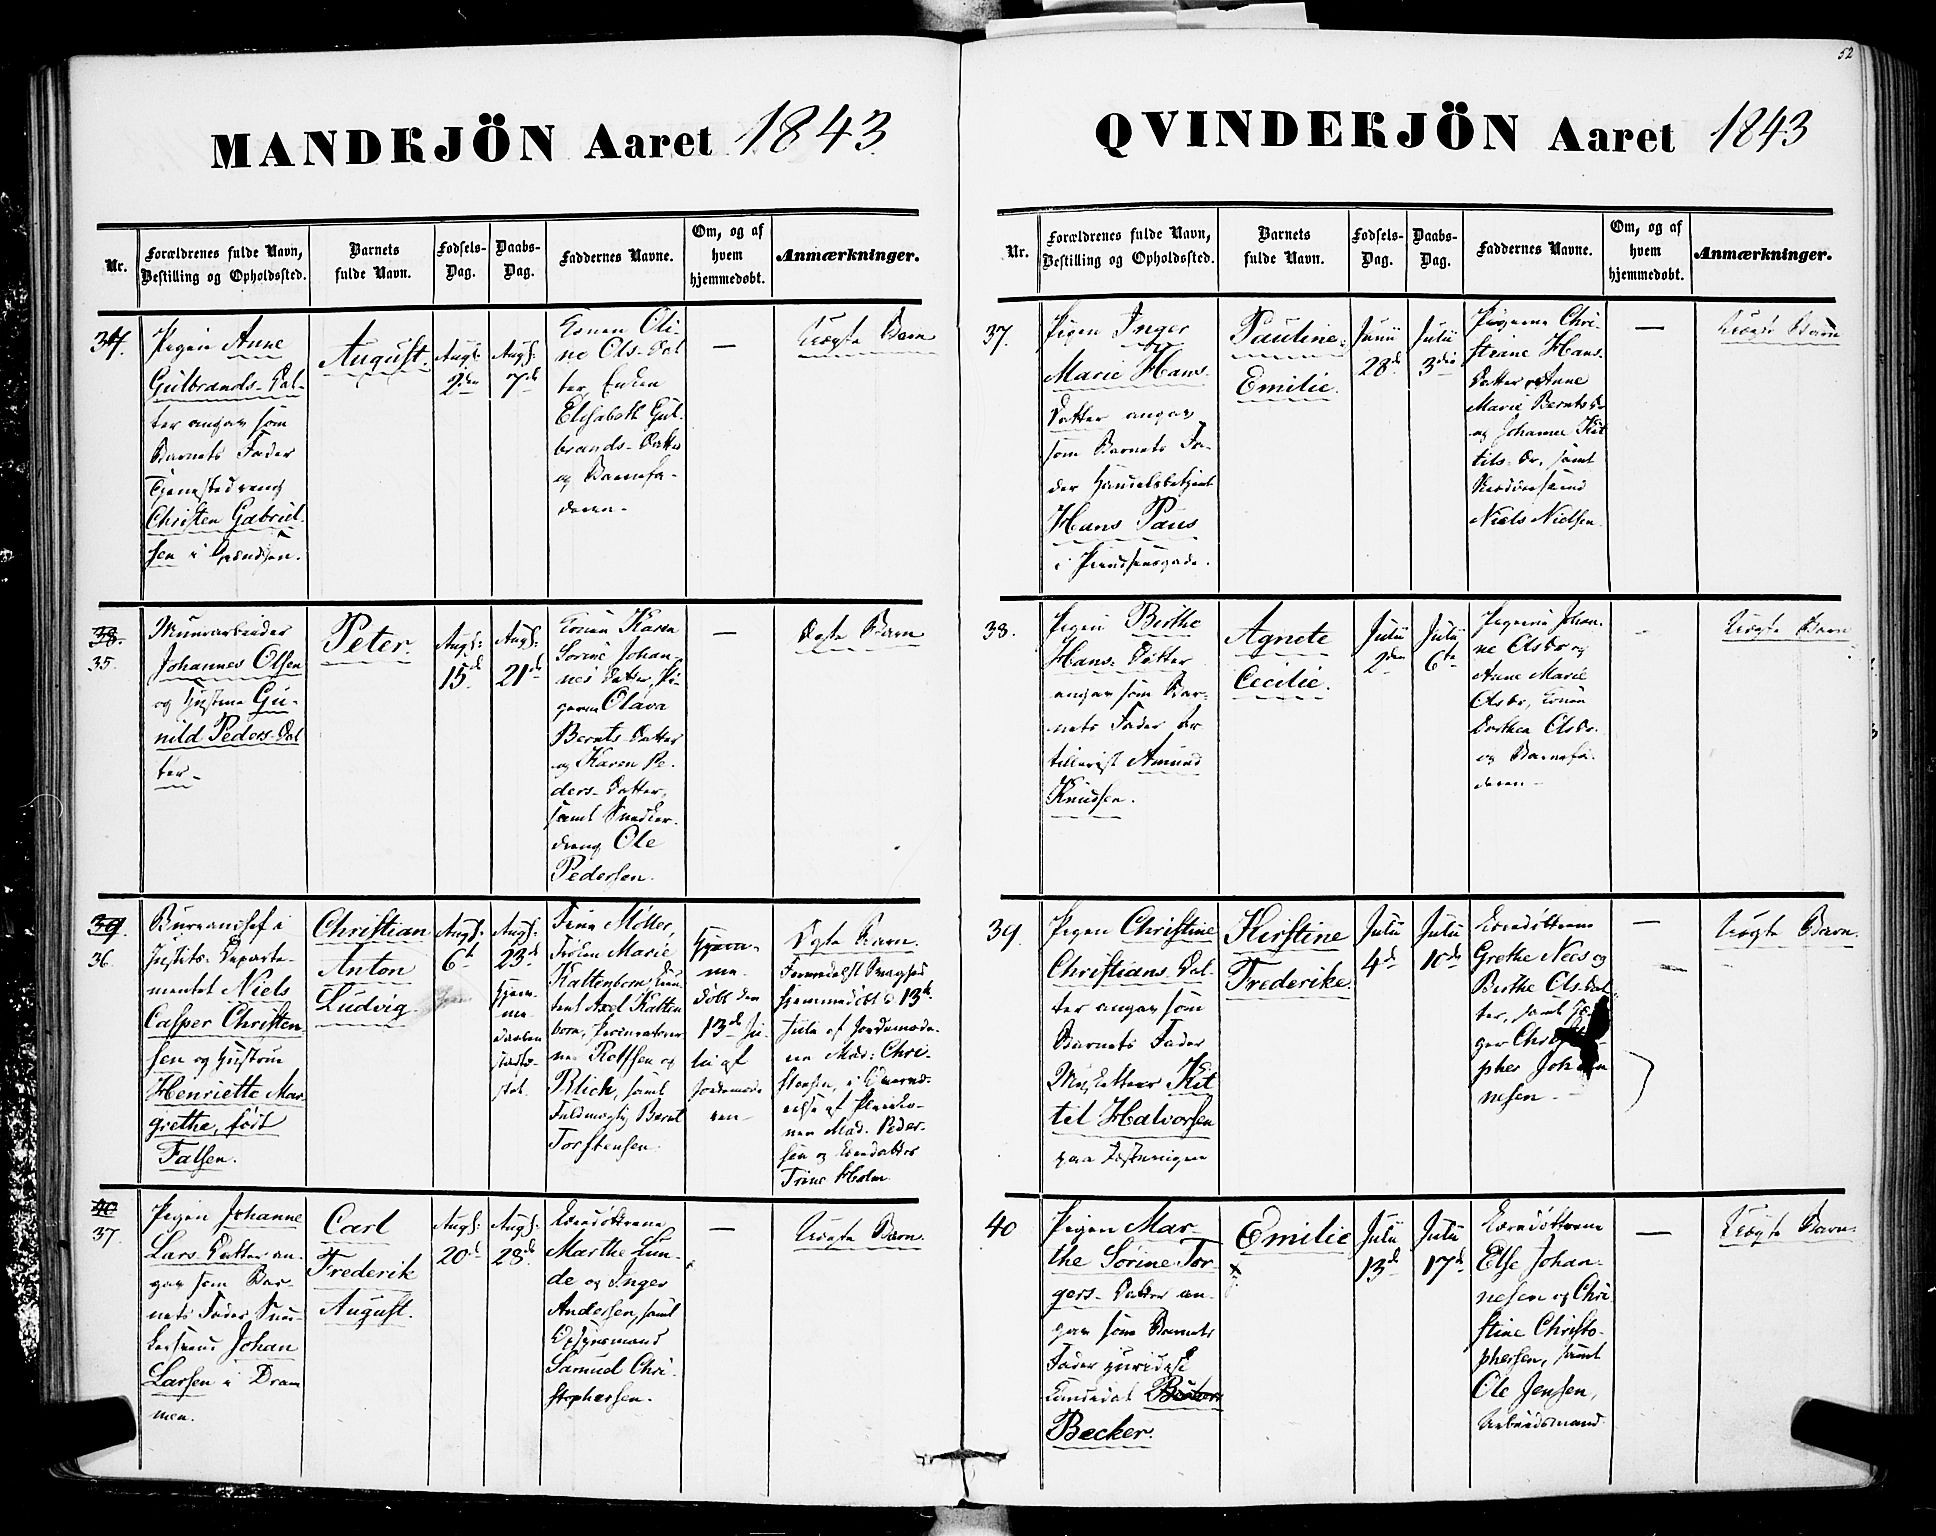 52
MANDKJÖN Aaret 1843
Nr.
Forældrenes fulde Navn,
Bestilling og Opholdssted.
Barnets
fulde Navn.
Fødsels-
Dag.
Daabs-
Dag.
Faddernes Navne.
Om, og af
hvem
hjemmedøbt.
Anmærkninger.
34.
Pigen Anne
Gulbrands-Dat-
ter angav som
Barnets Fader
Tjenestedreng
Christen Gabriel-
sen i
August.
Augs:
2den
Augs:
7de
Konen Oli-
ne Ols-Dat
ter, Enken
Elisabeth Gul-
brands-Datter
og Barnefa-
deren-
—
Uægte Barn
38.
35.
Murarbeider
Johannes Olsen
og Hustrue Gu-
nild Peders-Dat
ter-
Peter.
Augs:
15de
Augs:
21de
Konen Karen
Sorine Johan-
nes Datter, Pi-
gerne Olava
Bernts-Datter
og Karen Pe-
ders-Datter,
samt Snedker-
dreng Ole
Pedersen.
—
Ægte Barn
39
36.
Bureauchef i
Justits-Departe-
mentet Niels
Casper Christen
sen og Hustrue
Henriette Mar-
grethe, født
Falsen.
Christian
Anton
Ludvig
Augs:
6te
Augs:
23de
hjem-
me-
Møller,
Frøken Marie
Kaltenborn,
Axel Kalten
born,
Rolfsen og
Blich, samt
Fuldmægtig Bernt
Torstensen.
Hjem-
me-
døbt den
13de Ju-
li af
Jordemode
ren-
Ægte Barn.
hjemmedøbt d. 13de
Julii af Jordemode-
ren Mad: Chri-
stensen, i
af
Mad. Peder-
sen og
Trine Holm
40
37.
Pigen Johanne
Lars-Datter an-
gav som Bar-
nets Fader Sned-
kersvend Johan
Larsen i Dram
men.
Carl
Frederik
August.
Augs:
20de
Augs:
28de
Marthe Lun-
de og Inger
Andersen, samt
Opsynsmand
Samuel Chri-
stophersen.
—
Uægte Barn.
QVINDEKJÖN Aaret 1843
Nr.
Forældrenes fulde Navn,
Bestilling og Opholdssted.
Barnets
fulde Navn.
Fødsels-
Dag.
Daabs-
Dag.
Faddernes Navne.
Om, og af
hvem
hjemmedøbt.
Anmærkninger.
37.
Pigen Inger
Marie Hans-
Datter angav
som Barnets Fa-
der Handelsbetjent
Hans Paus
i
Pauline
Emilie.
Junii
28de
Julii
3die
Pigerne Chri-
stiane Hans-
Datter, Anne
Marie Berntsdr
og Johanne Kit
tils-Dr, samt
Niels Nielsen.
—
Uægte Barn
38.
Pigen Birthe
Hans-Datter
angav som Bar-
nets Fader Ar-
tillerist Amund
Knudsen.
Agnete
Cecilie.
Julii
2den
Julii
6te
Pigerne Johan-
ne Olsdr og
Anne Marie
Olsdr, Konen
Dorthea Olsdr.
og Barnefa-
deren-
-
Uægte Barn
39
Pigen Christine
Christians-Dat-
ter angav som
Barnets Fader
Musketeer Kit
til Halvorsen
paa Fæstningen
Kirstine
Frederike.
Julii
4de
Julii
10de
Grethe Nees og
Birthe Ols-Dat
ter, samt
Christo
pher Johan
nesen-
—
Uægte Barn.
40
Pigen Mar-
the Sorine Tor-
gers-Datter an-
gav som Barnets
Fader juridisk
Candidat
Becker.
Emilie
Julii
13de
Julii
17de
Else Johan-
nesen og Chri-
stine Christo-
phersen, samt
Ole Jensen,
Arbeidsmand
—
Uægte Barn.